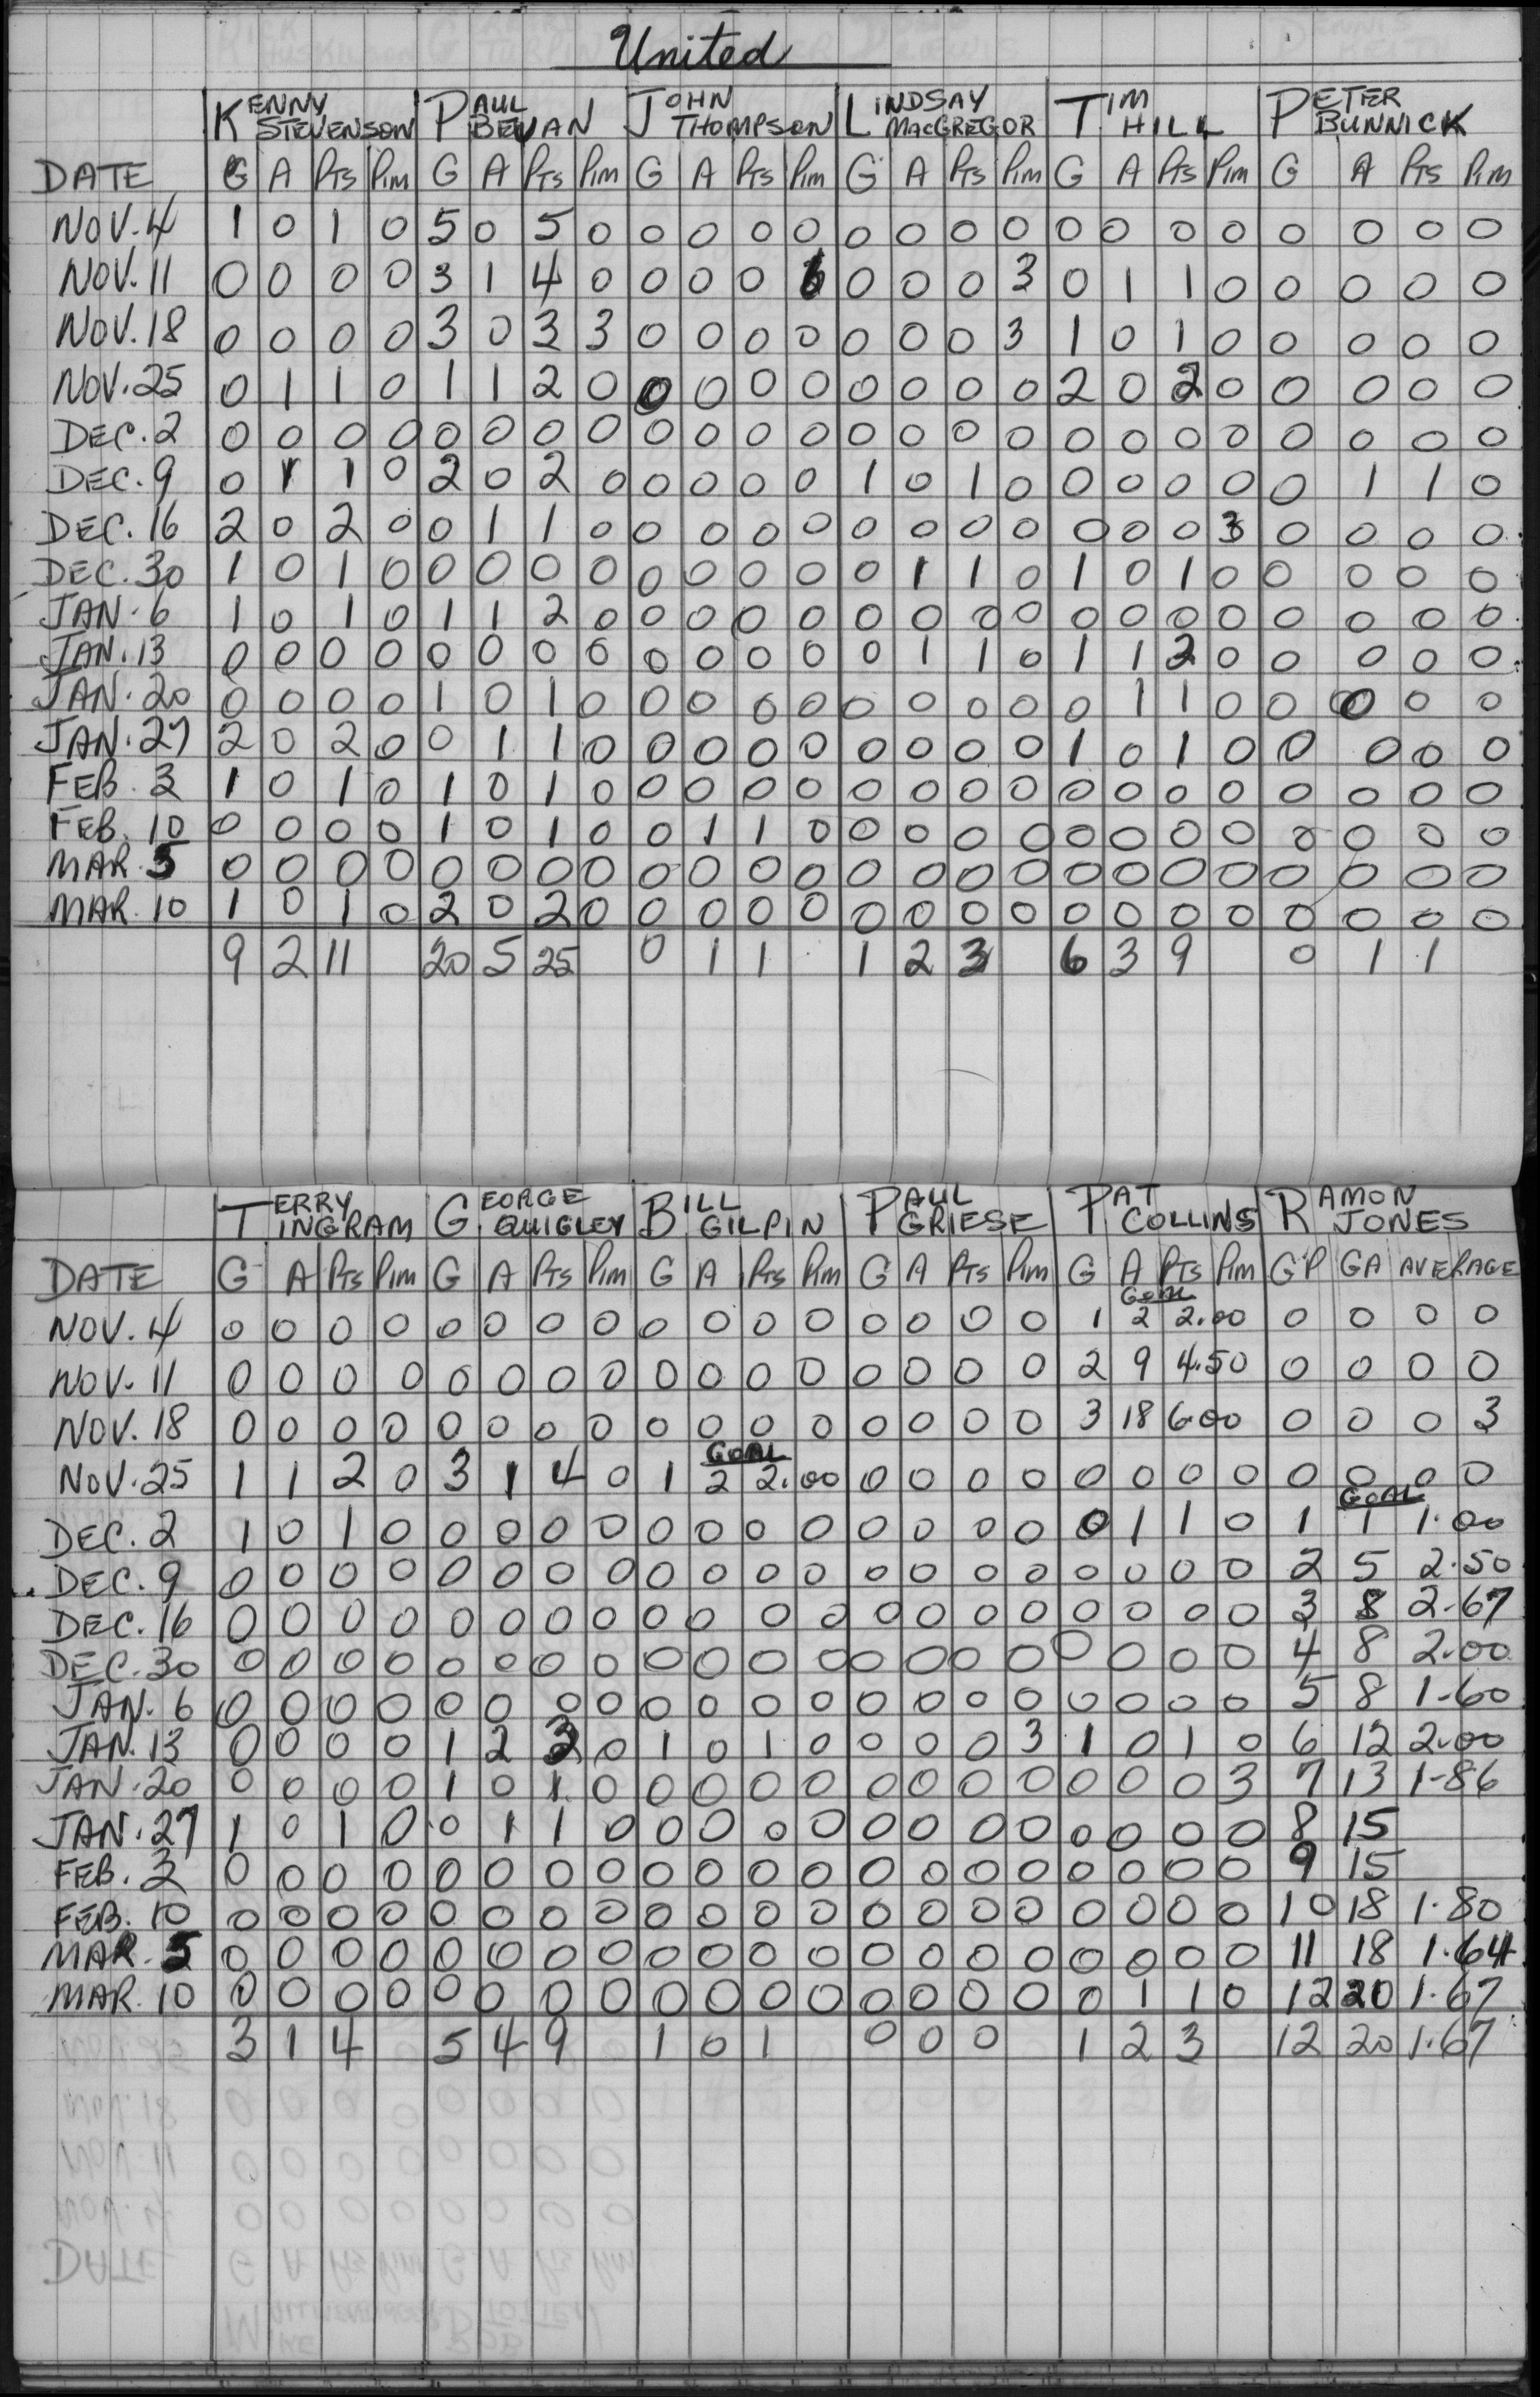 United
KENNY STEVENSON PAUL BEVAN JOHN THOMPSON LINDSAY MACGREGOR TIM HILL PETER BUNNICK
DATE G A PTS PIM G A PTS PIM G A PTS PIM G A PTS PIM G A PTS PIM G A PTS PIM
NOV. 4 1 0 1 0 5 0 5 0 0 0 0 0 0 0 0 0 0 0 0 0 0 0 0 0
NOV. 11 0 0 0 0 3 1 4 0 0 0 0 6 0 0 0 3 0 1 1 0 0 0 0 0
NOV. 18 0 0 0 0 3 0 3 3 0 0 0 0 0 0 0 3 1 0 1 0 0 0 0 0
NOV. 25 0 1 1 0 1 1 2 0 0 0 0 0 0 0 0 0 2 0 2 0 0 0 0 0
DEC. 2 0 0 0 0 0 0 0 0 0 0 0 0 0 0 0 0 0 0 0 0 0 0 0 0
DEC. 9 0 1 1 0 2 0 2 0 0 0 0 0 1 0 1 0 0 0 0 0 0 1 1 0
DEC. 16 2 0 2 0 0 1 1 0 0 0 0 0 0 0 0 0 0 0 0 3 0 0 0 0
DEC. 30 1 0 1 0 0 0 0 0 0 0 0 0 0 1 1 0 1 0 1 0 0 0 0 0
JAN. 6 1 0 1 0 1 1 2 0 0 0 0 0 0 0 0 0 0 0 0 0 0 0 0 0
JAN. 13 0 0 0 0 0 0 0 0 0 0 0 0 0 1 1 0 1 1 2 0 0 0 0 0
JAN. 20 0 0 0 0 1 0 1 0 0 0 0 0 0 0 0 0 0 1 1 0 0 0 0 0
JAN. 27 2 0 2 0 0 1 1 0 0 0 0 0 0 0 0 0 1 0 1 0 0 0 0 0
FEB. 3 1 0 1 0 1 0 1 0 0 0 0 0 0 0 0 0 0 0 0 0 0 0 0 0
FEB. 10 0 0 0 0 1 0 1 0 0 1 1 0 0 0 0 0 0 0 0 0 0 0 0 0
MAR. 5 0 0 0 0 0 0 0 0 0 0 0 0 0 0 0 0 0 0 0 0 0 0 0 0
MAR. 10 1 0 1 0 2 0 2 0 0 0 0 0 0 0 0 0 0 0 0 0 0 0 0 0
9 2 11 20 5 25 0 1 1 1 2 3 6 3 9 0 1 1
TERRY INGRAM GEORGE QUIGLEY BILL GILPIN PAUL GRIESE PAT COLLINS RAMON JONES
DATE G A PTS PIM G A PTS PIM G A PTS PIM G A PTS PIM G A PTS PIM GP GA AVERAGE
GOAL
NOV. 4 0 0 0 0 0 0 0 0 0 0 0 0 0 0 0 0 1 2 2.00 0 0 0 0
NOV. 11 0 0 0 0 0 0 0 0 0 0 0 0 0 0 0 0 2 9 4.50 0 0 0 0
NOV. 18 0 0 0 0 0 0 0 0 0 0 0 0 0 0 0 0 3 18 6.00 0 0 0 3
GOAL
NOV. 25 1 1 2 0 3 1 4 0 1 2 2.00 0 0 0 0 0 0 0 0 0 0 0 0
GOAL
DEC. 2 1 0 1 0 0 0 0 0 0 0 0 0 0 0 0 0 0 1 1 0 1 1 1.00
DEC. 9 0 0 0 0 0 0 0 0 0 0 0 0 0 0 0 0 0 0 0 0 2 5 2.50
DEC. 16 0 0 0 0 0 0 0 0 0 0 0 0 0 0 0 0 0 0 0 0 3 8 2.67
DEC. 30 0 0 0 0 0 0 0 0 0 0 0 0 0 0 0 0 0 0 0 0 4 8 2.00
JAN. 6 0 0 0 0 0 0 0 0 0 0 0 0 0 0 0 0 0 0 0 0 5 8 1.60
JAN. 13 0 0 0 0 1 2 3 0 1 0 1 0 0 0 0 3 1 0 1 0 6 12 2.00
JAN. 20 0 0 0 0 1 0 1 0 0 0 0 0 0 0 0 0 0 0 0 3 7 13 1.86
JAN. 27 1 0 1 0 0 1 1 0 0 0 0 0 0 0 0 0 0 0 0 0 8 15
FEB. 3 0 0 0 0 0 0 0 0 0 0 0 0 0 0 0 0 0 0 0 0 9 15
FEB. 10 0 0 0 0 0 0 0 0 0 0 0 0 0 0 0 0 0 0 0 0 10 18 1.80
MAR. 5 0 0 0 0 0 0 0 0 0 0 0 0 0 0 0 0 0 0 0 0 11 18 1.64
MAR. 10 0 0 0 0 0 0 0 0 0 0 0 0 0 0 0 0 0 1 1 0 12 20 1.67
3 1 4 5 4 9 1 0 1 0 0 0 1 2 3 12 20 1.67